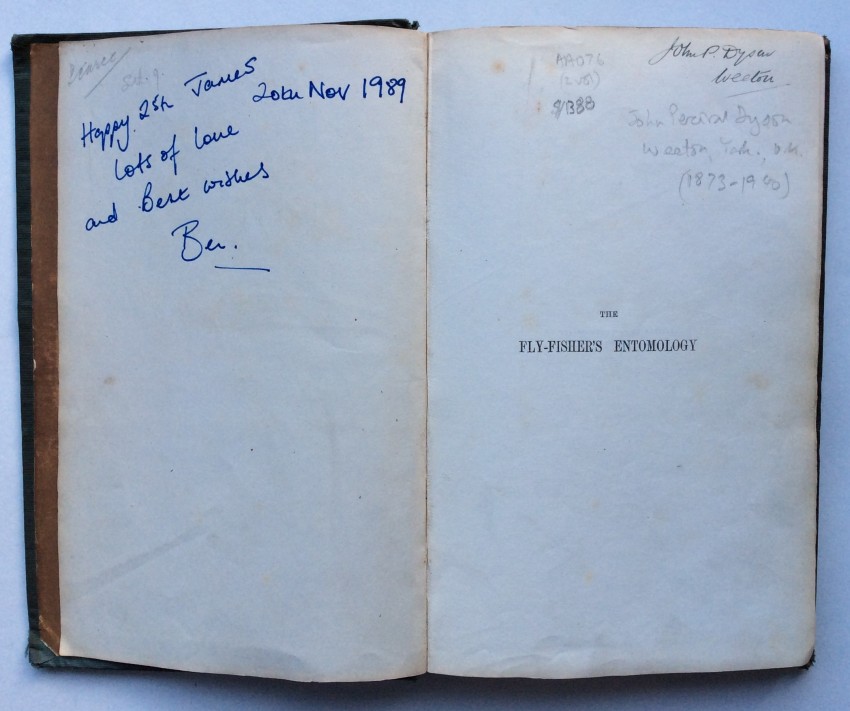 Happy 25th James
20th Nov 1989
Lots of love
and Best wishes
Ben.
AA076
(2 vol)
John P. Dyson
Weeton
John Percival Dyson
Weeton, York., U.K.
THE
FLY-FISHER'S ENTOMOLOGY